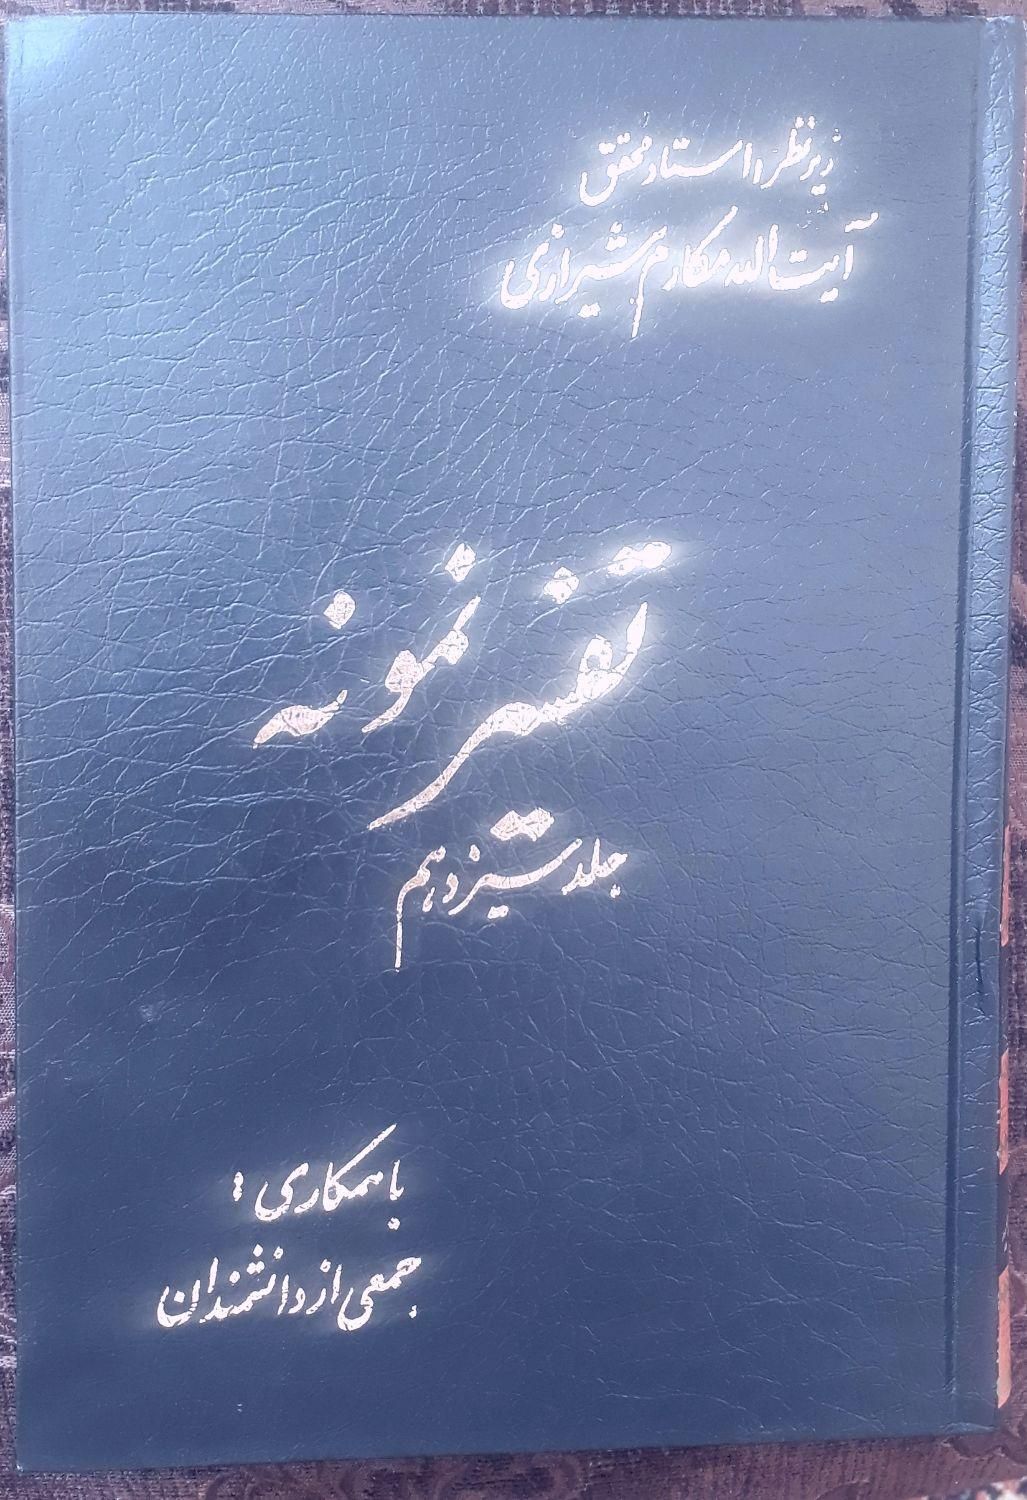 زیر نظر استاد محقق
آیت الله مکارم شیرازی
تفسیر نمونه
جلد سیزدهم
با همکاری :
جمعی از دانشمندان